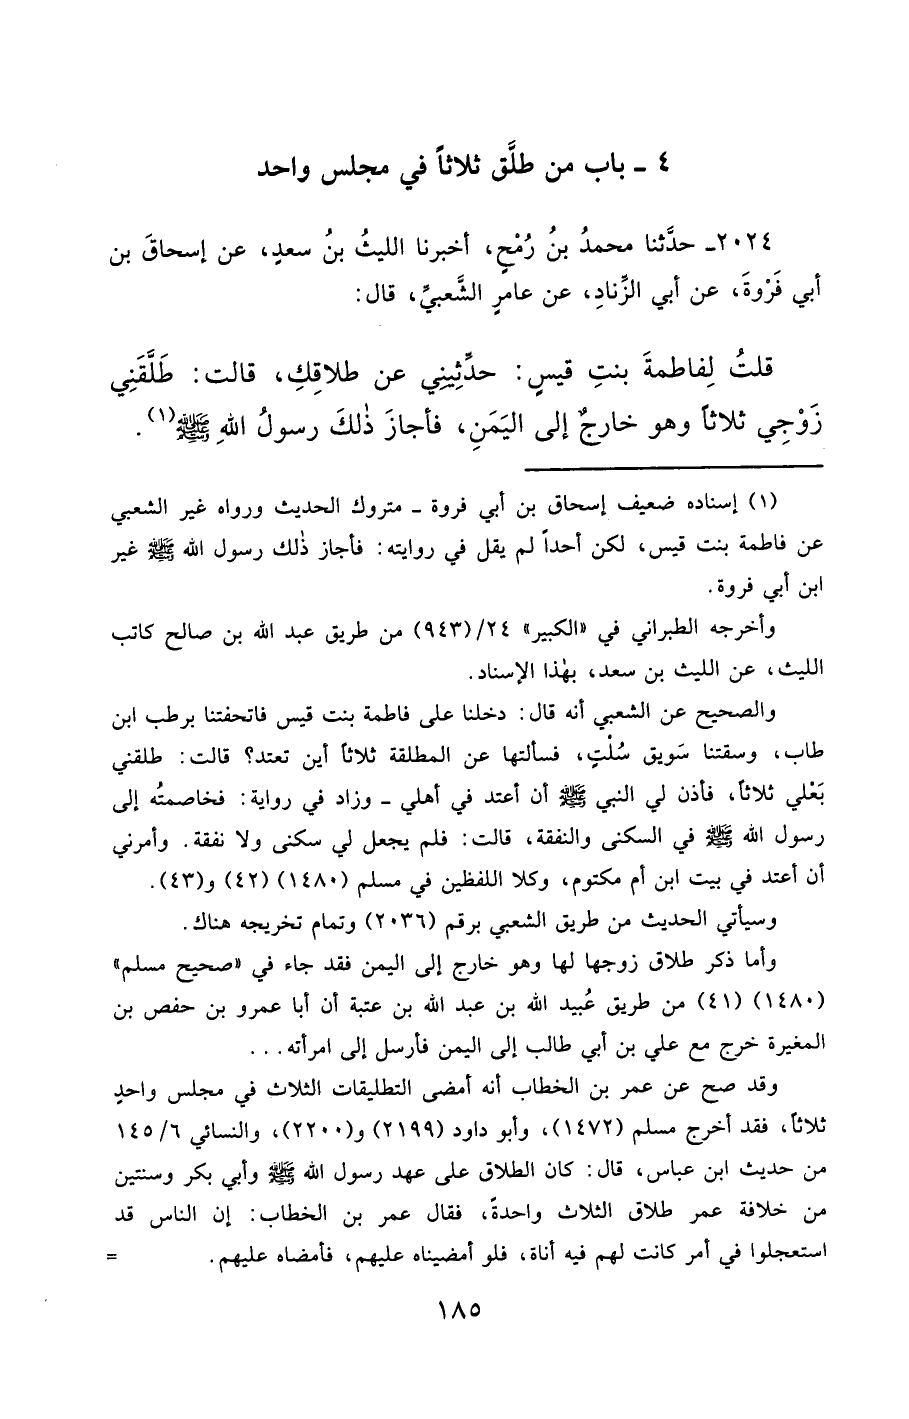 ٤ ـ باب من طلَّق ثلاثاً في مجلس واحد
٢٠٢٤ـ حدَّثنا محمدُ بنُ رُمْحٍ، أخبرنا الليثُ بنُ سعدٍ، عن إسحاقَ بن
أبي فَرْوةَ، عن أبي الزِّنادِ، عن عامرٍ الشَّعبيِّ، قال:
قلتُ لِفاطمةَ بنتِ قيسٍ: حدِّثِيني عن طلاقِكِ، قالت: طَلَّقَنِي
زَوْجِي ثلاثاً وهو خارجٌ إلى اليَمَنِ، فأجازَ ذٰلكَ رسولُ اللهِ ﷺ(١).
(١) إسناده ضعيف إسحاق بن أبي فروة ـ متروك الحديث ورواه غير الشعبي
عن فاطمة بنت قيس، لكن أحداً لم يقل في روايته: فأجاز ذٰلك رسول الله ﷺ غير
ابن أبي فروة.
وأخرجه الطبراني في «الكبير» ٢٤/(٩٤٣) من طريق عبد الله بن صالح كاتب
الليث، عن الليث بن سعد، بهٰذا الإسناد.
والصحيح عن الشعبي أنه قال: دخلنا على فاطمة بنت قيس فاتحفتنا برطب ابن
طاب، وسقتنا سَويق سُلْتٍ، فسألتها عن المطلقة ثلاثاً أين تعتد؟ قالت: طلقني
بَعْلي ثلاثاً، فأذن لي النبي ﷺ أن أعتد في أهلي ـ وزاد في رواية: فخاصمتُه إلى
رسول الله ﷺ في السكنى والنفقة، قالت: فلم يجعل لي سكنى ولا نفقة. وأمرني
أن أعتد في بيت ابن أم مكتوم، وكلا اللفظين في مسلم (١٤٨٠) (٤٢) و(٤٣).
وسيأتي الحديث من طريق الشعبي برقم (٢٠٣٦) وتمام تخريجه هناك.
وأما ذكر طلاق زوجها لها وهو خارج إلى اليمن فقد جاء في «صحيح مسلم»
(١٤٨٠) (٤١) من طريق عُبيد الله بن عبد الله بن عتبة أن أبا عمرو بن حفص بن
المغيرة خرج مع علي بن أبي طالب إلى اليمن فأرسل إلى امرأته...
وقد صح عن عمر بن الخطاب أنه أمضى التطليقات الثلاث في مجلس واحدٍ
ثلاثاً، فقد أخرج مسلم (١٤٧٢)، وأبو داود (٢١٩٩) و(٢٢٠٠)، والنسائي ٦/ ١٤٥
من حديث ابن عباس، قال: كان الطلاق على عهد رسول الله ﷺ وأبي بكر وسنتين
من خلافة عمر طلاق الثلاث واحدةً، فقال عمر بن الخطاب: إن الناس قد
استعجلوا في أمر كانت لهم فيه أناة، فلو أمضيناه عليهم، فأمضاه عليهم. =
١٨٥